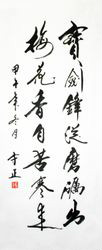 寶劍鋒從磨礪出
梅花香自苦寒來
甲午年冬月